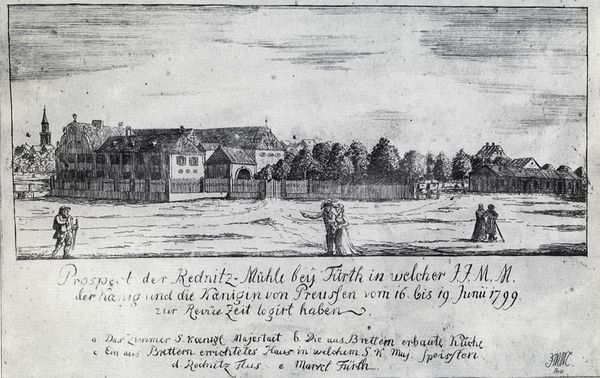 Prospect der Rednitz-Mühle beÿ Fürth in welcher J.J.M.M.
der Kœnig und die Kœnigin von Preussen vom 16. bis 19. Junii 1799.
zur Revüe Zeit logirt haben.
a Das Zimmer S. Kœnigl Majestaet. b Die aus Brettern erbaute Küche
c Ein aus Brettern errichtetes Haus in welchem S. K. Maj. Speissten.
d Rednitz Flus. e Marckt Fürth.